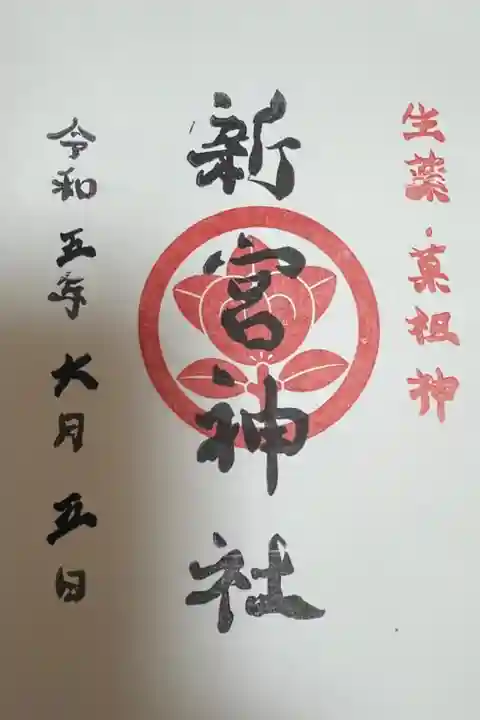 生薬・菓祖神
新宮神社
令和五年六月五日